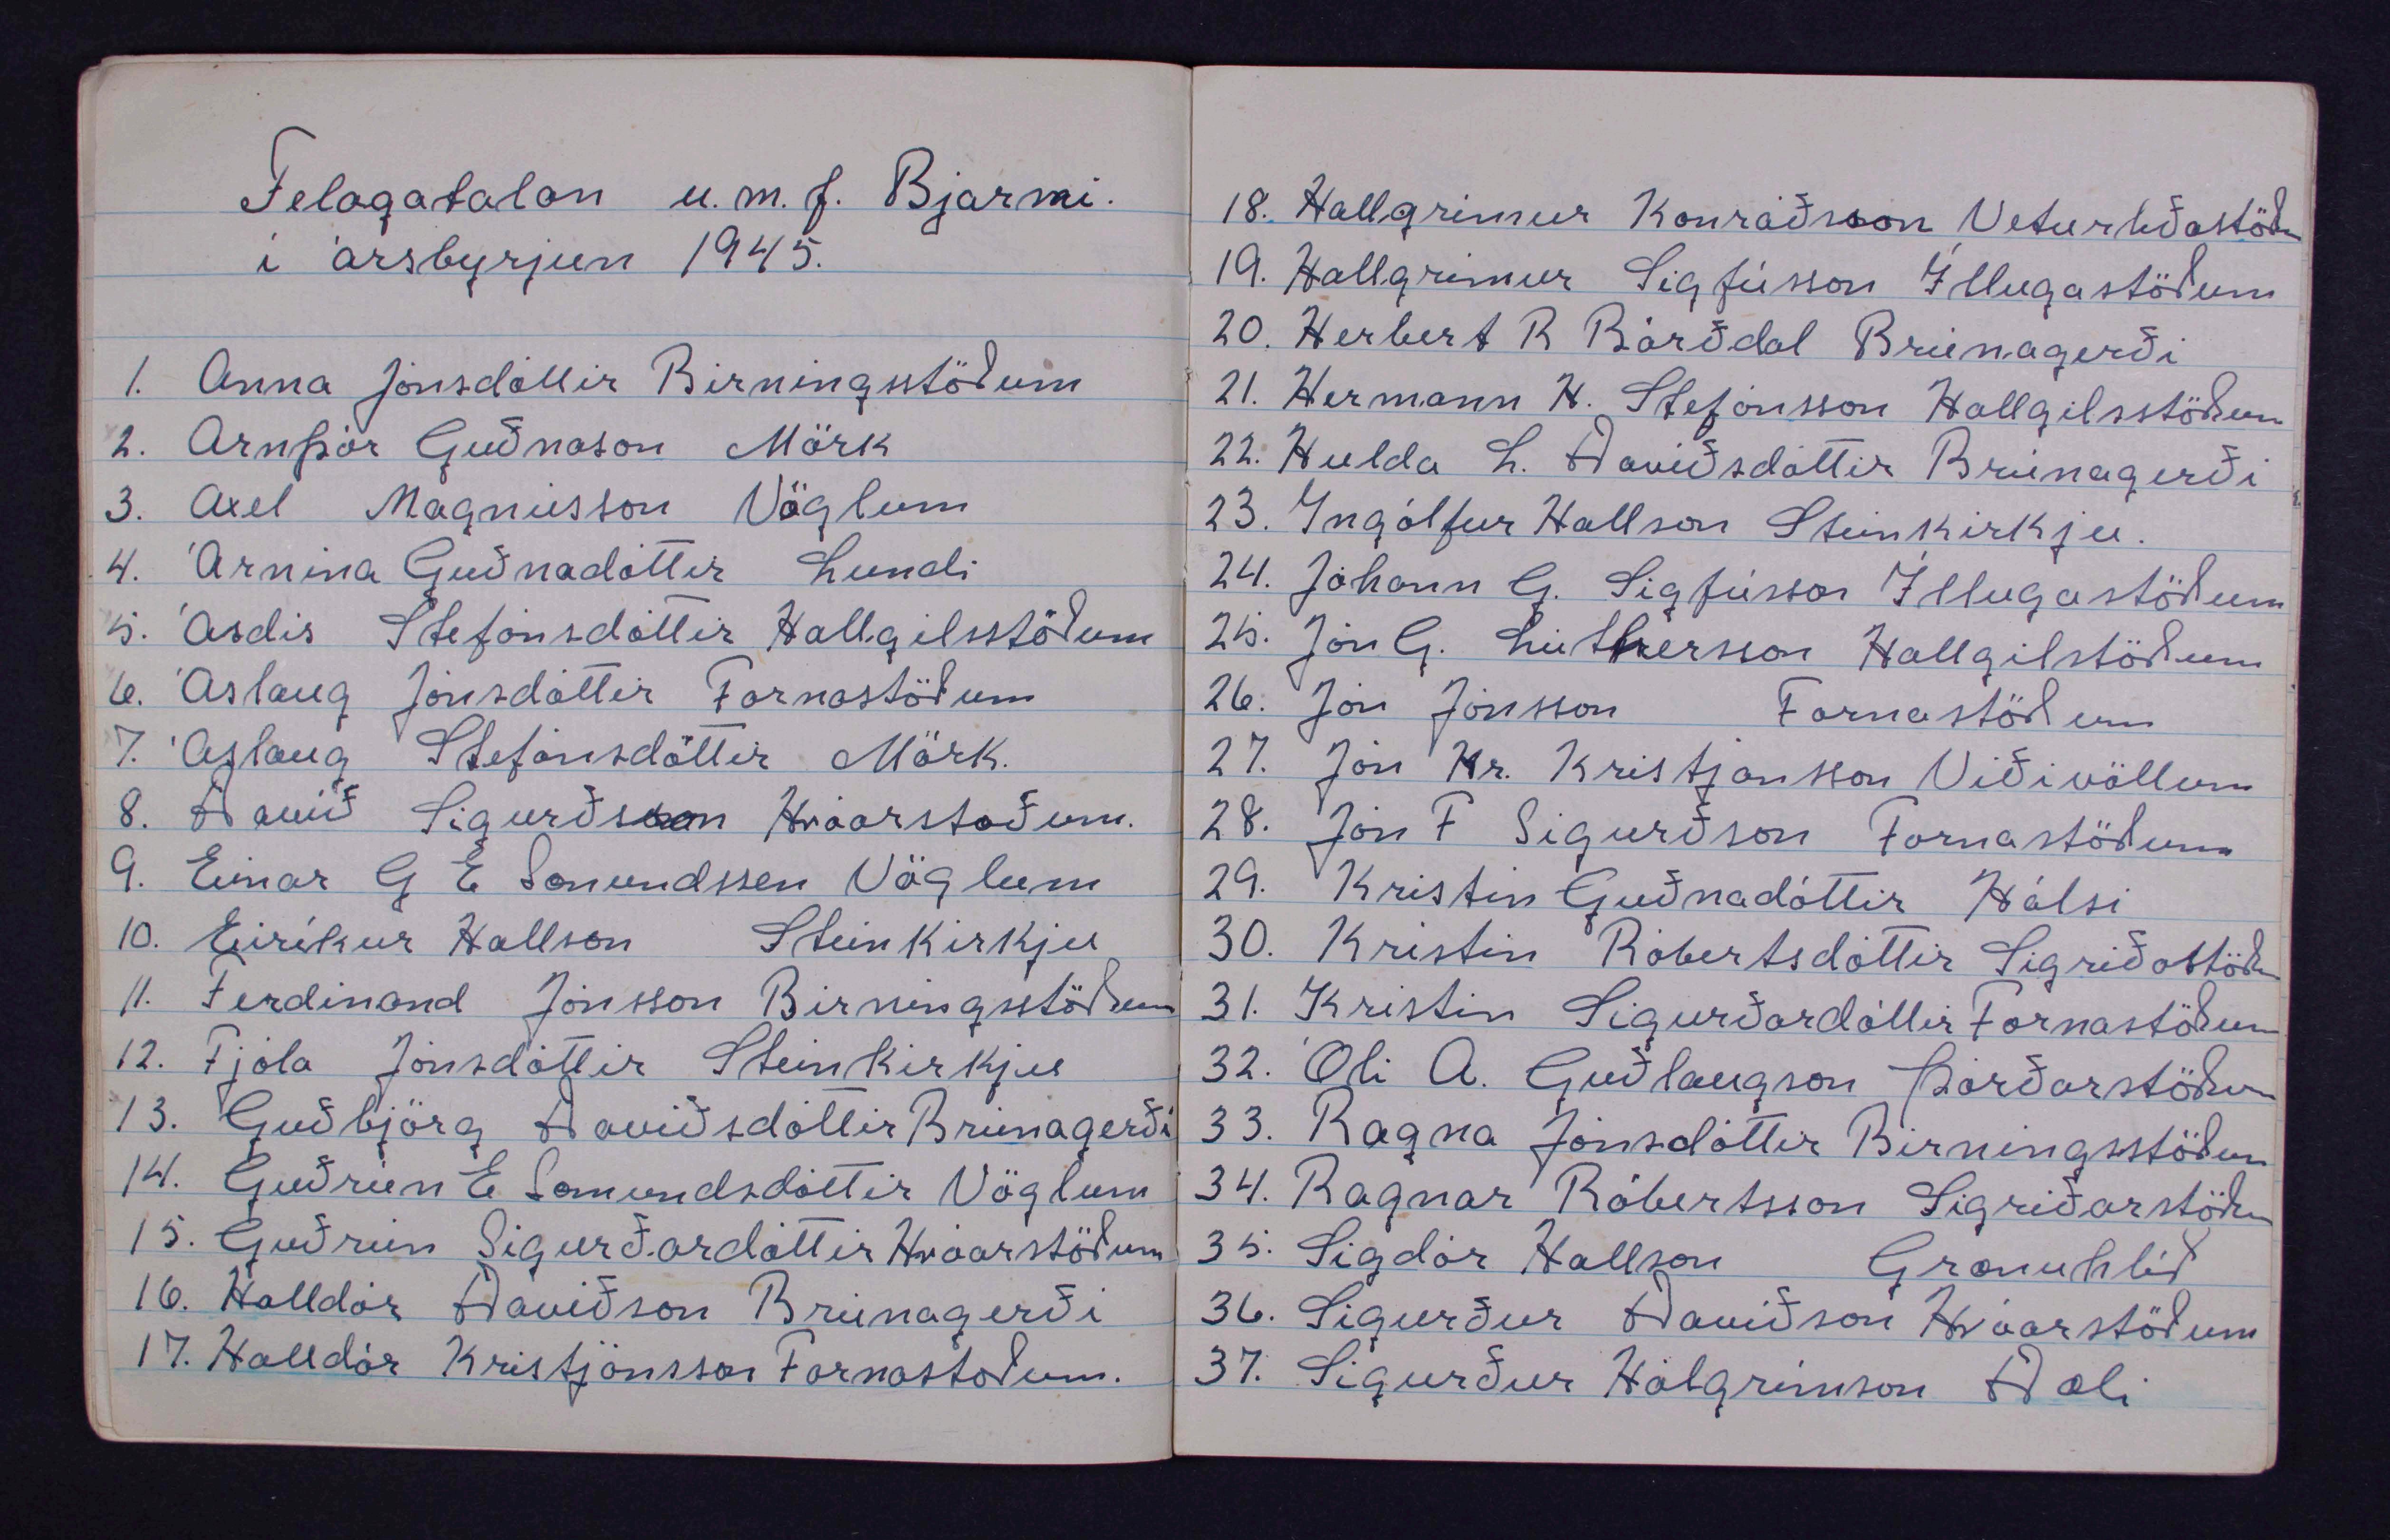 Felagatalan u.m.f. Bjarmi.
í ársbyrjun 1945.
1. Anna Jónsdóttir Birningsstöðum
2. Arnþór Guðnason Mörk
3. Axel Magnússon Vöglum
4. Árnína Guðnadóttir Lundi
5. Ásdís Stefánsdóttir Hallgilsstöðum
6. Áslaug Jónsdóttir Fornastöðum
7. Áslaug Stefánsdóttir Mörk.
8. Davíð Sigurðsson Hróarstoðum.
9. Einar G E Sæmundssen Vöglum
10. Eiríkur Hallson Steinkirkju
11. Ferdinand Jónsson Birningsstöðum
12. Fjóla Jónsdóttir Steinkirkju
13. Guðbjörg Davíðsdóttir Brúnagerði
14. Guðrún E Sæmundsdóttir Vöglum
15. Guðrún Sigurðardóttir Hróarstöðum
16. Halldór Davíðson Brúnagerði
17. Halldór Kristjánsson Fornastoðum.
18. Hallgrímur Konráðsson Veturliðastöðum
19. Hallgrímur Sigfússon Illugastöðum
20. Herbert R Bárðdal Brúnagerði
21. Hermann H. Stefánsson Hallgilsstöðum
22. Hulda L. Davíðsdóttir Brúnagerði
23. Ingólfur Hallson Steinkirkju.
24. Jóhann G. Sigfússon Illugastöðum
25. Jón G. Lúthersson Hallgilstöðum
26. Jón Jónsson Fornastöðum
27. Jón Kr. Kristjánsson Víðivöllum
28. Jón F Sigurðson Fornastöðum
29. Kristín Guðnadóttir Hálsi
30. Kristín Róbertsdóttir Sigríðastöðum
31. Kristín Sigurðardóttir Fornastöðum
32. Óli A. Guðlaugson Þórðarstöðum
33. Ragna Jónsdóttir Birningsstöðum
34. Ragnar Róbertsson Sigríðarstöðum
35. Sigdór Hallson Grænuhlíð
36. Sigurður Davíðson Hróarstöðum
37. Sigurður Hálgrímson Dæli